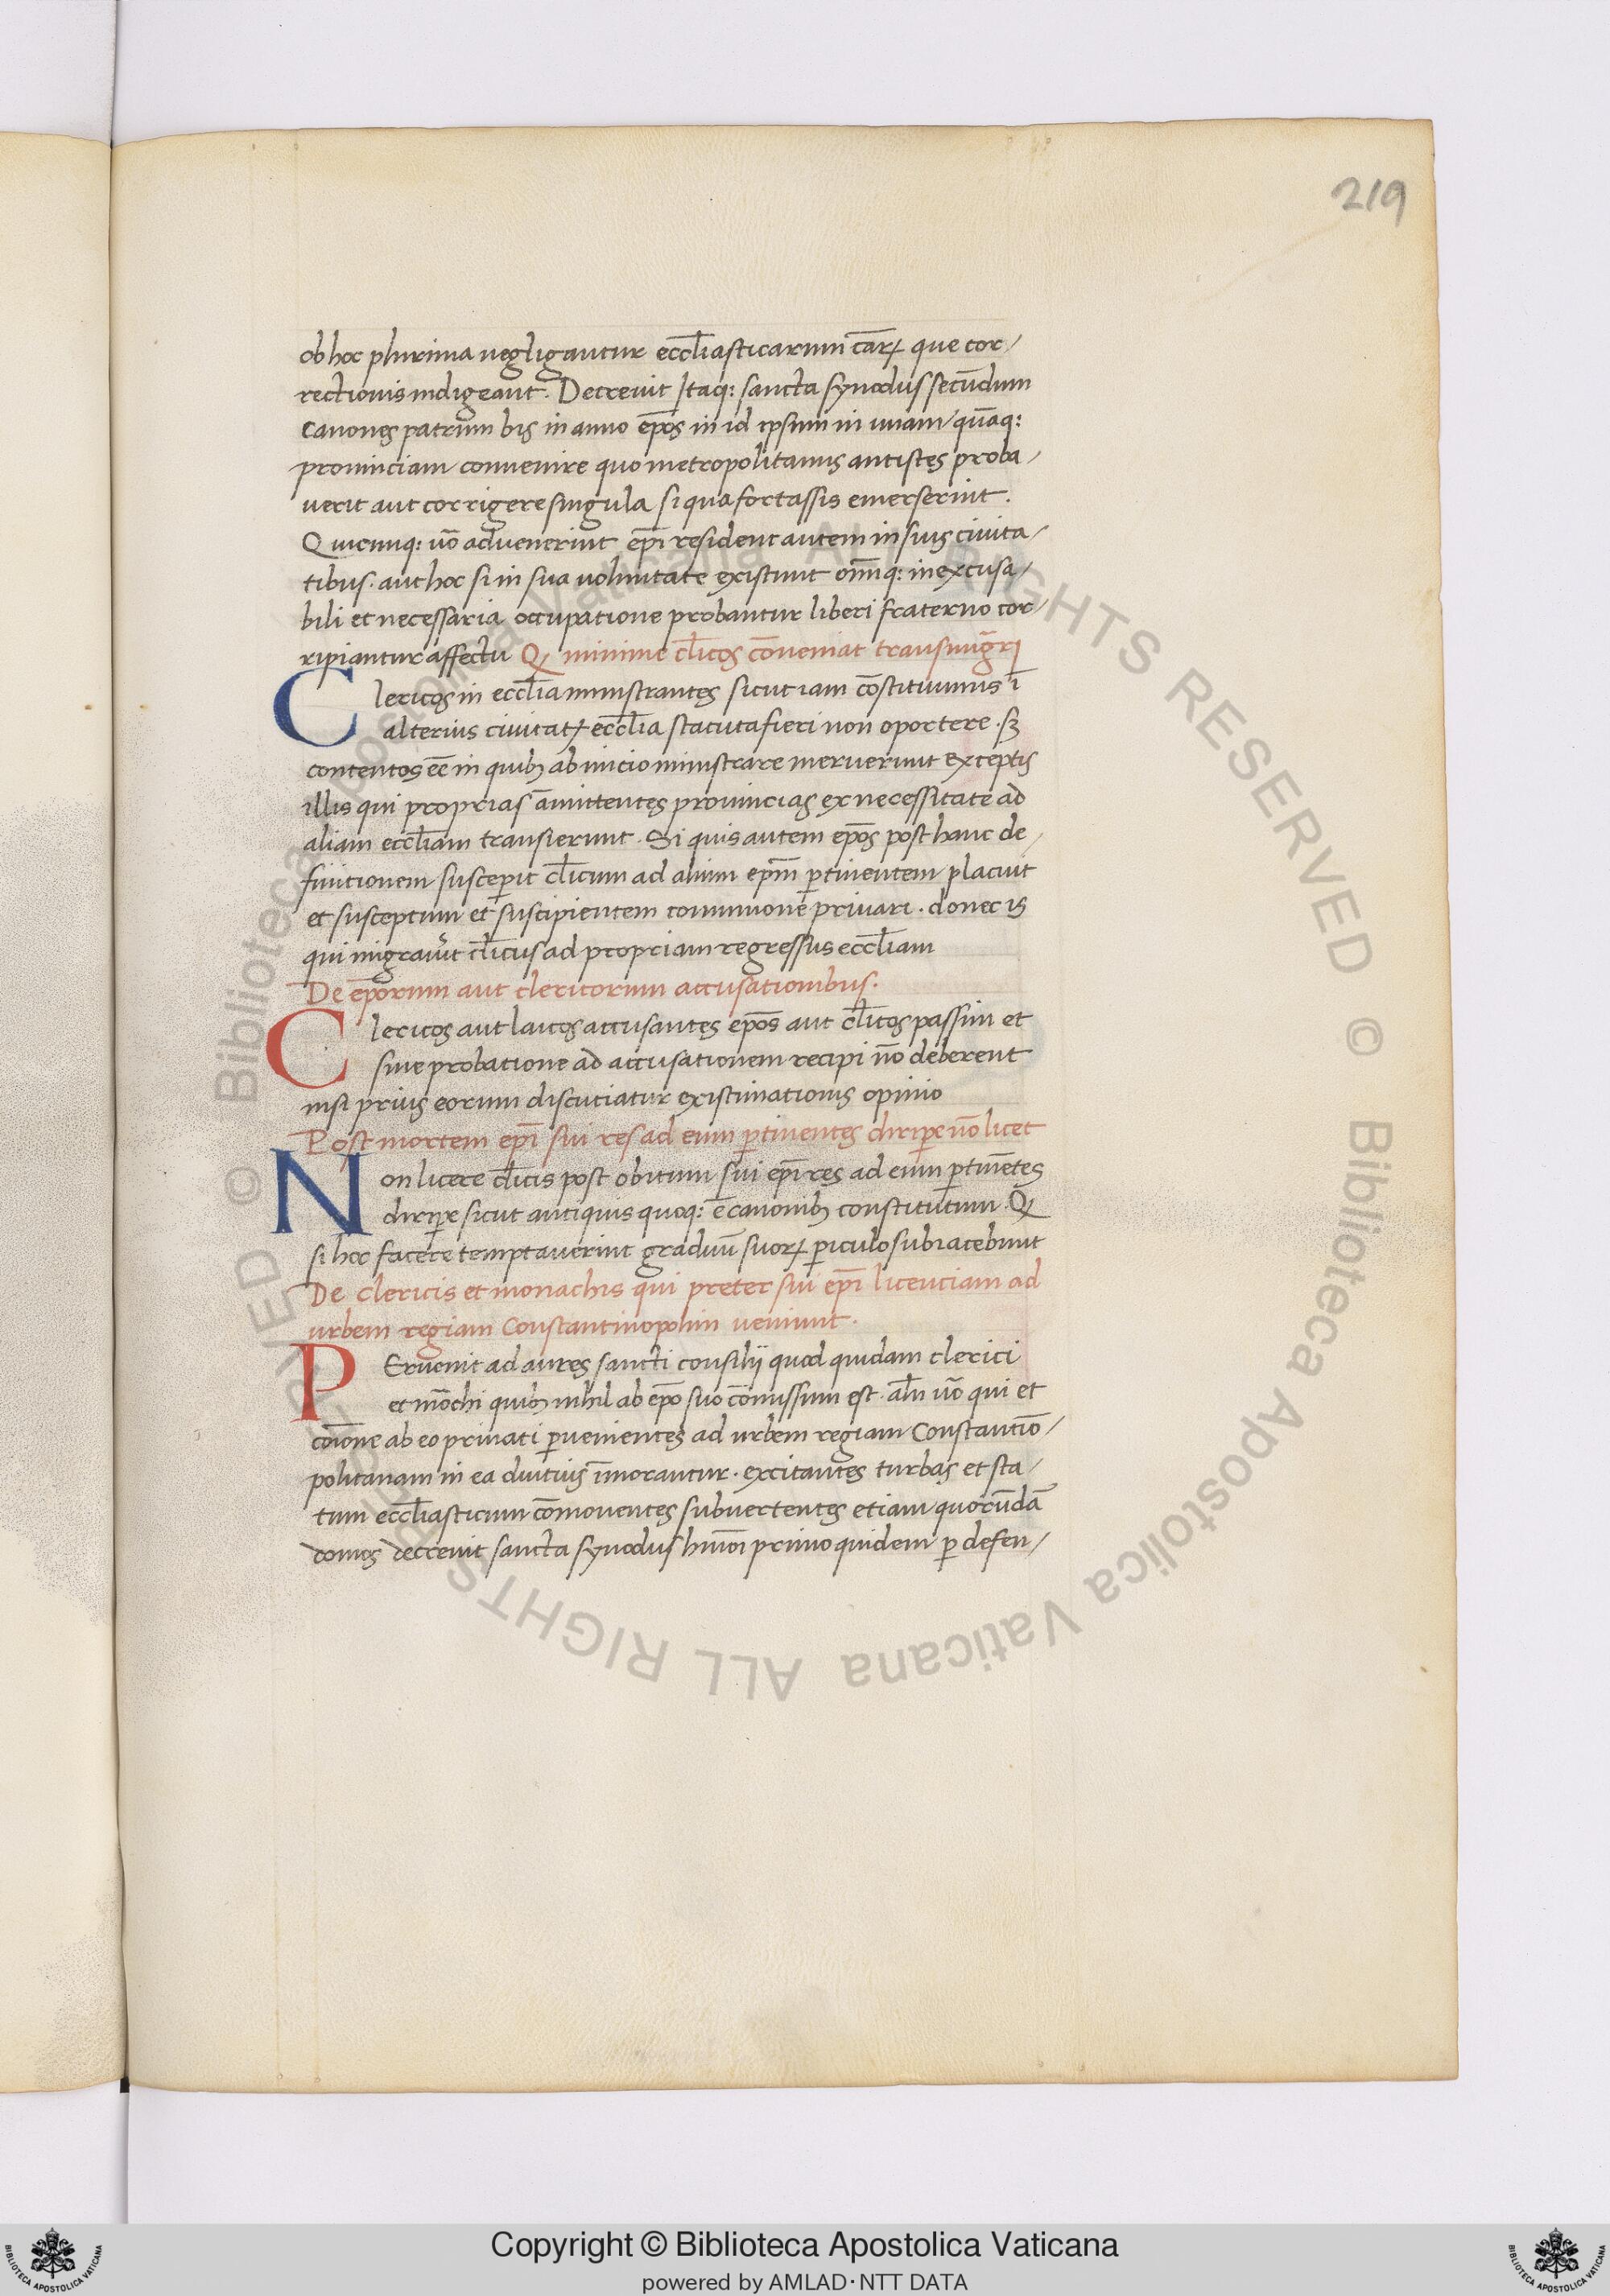 219
ob hoc plurima negligantur eccl̅iasticarum cārꝝ que cor/
rectionis indigeant. Decrevit Itaq: sancta synodus secūdum
canones patrum bis in anno ep̄os in id ipsum in unam quāq:
provinciam convenire quo metropolitanus antistes proba/
verit aut corrigere singula si qua fortassis emerserint.
Quicunq: ūo advenerint ep̄i resident autem in suis civita/
tibus. aut hoc si in sua voluntate existunt om̄iq: inexcusa/
bili et necessaria occupatione probantur liberi fraterno cor/
ripiantur affectu Ꝙ minime cl̅icos cōveniat transmigr̄i
Clericos in eccl̅ia ministrantes sicut iam cōstituimus ī
alterius civitatꝭ eccl̅ia statuta fieri non oportere. sꝫ
contentos eē in quibꝫ ab inicio ministrare meruerunt exceptis
illis qui proprias āmittentes provincias ex necessitate ad
aliam eccl̅iam transierunt. Si quis autem ep̄os post hanc de/
finitionem susceperit cl̅icum ad alium ep̄m ꝑtinentem placuit
et susceptum et suscipientem communone privari. donec is
qui migrav̄it cl̅icus ad propriam regressus eccl̅iam
De ep̄orum aut clericorum accusationibus.
Clericos aut laicos accusantes ep̄os aut cl̅icos passim et
sine probatione ad accusationem recipi nō deberent
nisi prius eorum discutiatur existimationis opinio
Post mortem ep̄i sui res ad eum ꝑtinentes diriꝑe nō licet
Non licere cl̅icis post obitum sui ep̄i res ad eum ꝑtinētes
diriꝑe sicut antiquis quoq: ē canonibꝫ constitutum. Ꝙ
si hoc facere temptaverint graduū suorꝝ ꝑiculo subiacebunt
De clericis et monachis qui preter sui ep̄i licenciam ad
urbem regiam Constantinopolim veniunt.
PErvenit ad aures sancti consilij quod quidam clerici
et mōchi quibꝫ nihil ab ep̄o suo cōmissum est. al̅n ūo qui et
cōione ab eo privati ꝑvenientes ad urbem regiam Constantīo/
politanam in ea diutius īmorantur. excitantes turbas et sta/
tum eccl̅iasticum cōmoventes subvertentes etiam quorūdā
domos decrevit sancta synodus hm̄oi primo quidem ꝑ defen/
Copyright © Biblioteca Apostolica Vaticana
powered by AMLAD·NTT DATA
© Biblioteca Apostolica Vaticana ALL RIGHTS RESERVED
© Biblioteca Apostolica Vaticana ALL RIGHTS RESERVED
BIBLIOTECA APOSTOLICA VATICANA
BIBLIOTECA APOSTOLICA VATICANA